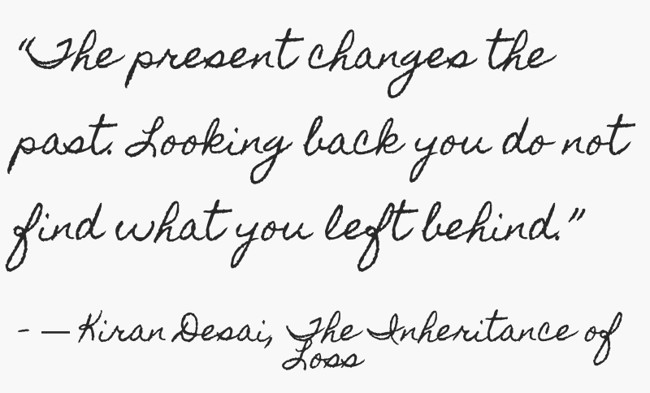 “The present changes the
past. Looking back you do not
find what you left behind.”
- — Kiran Desai, The Inheritance of
Loss